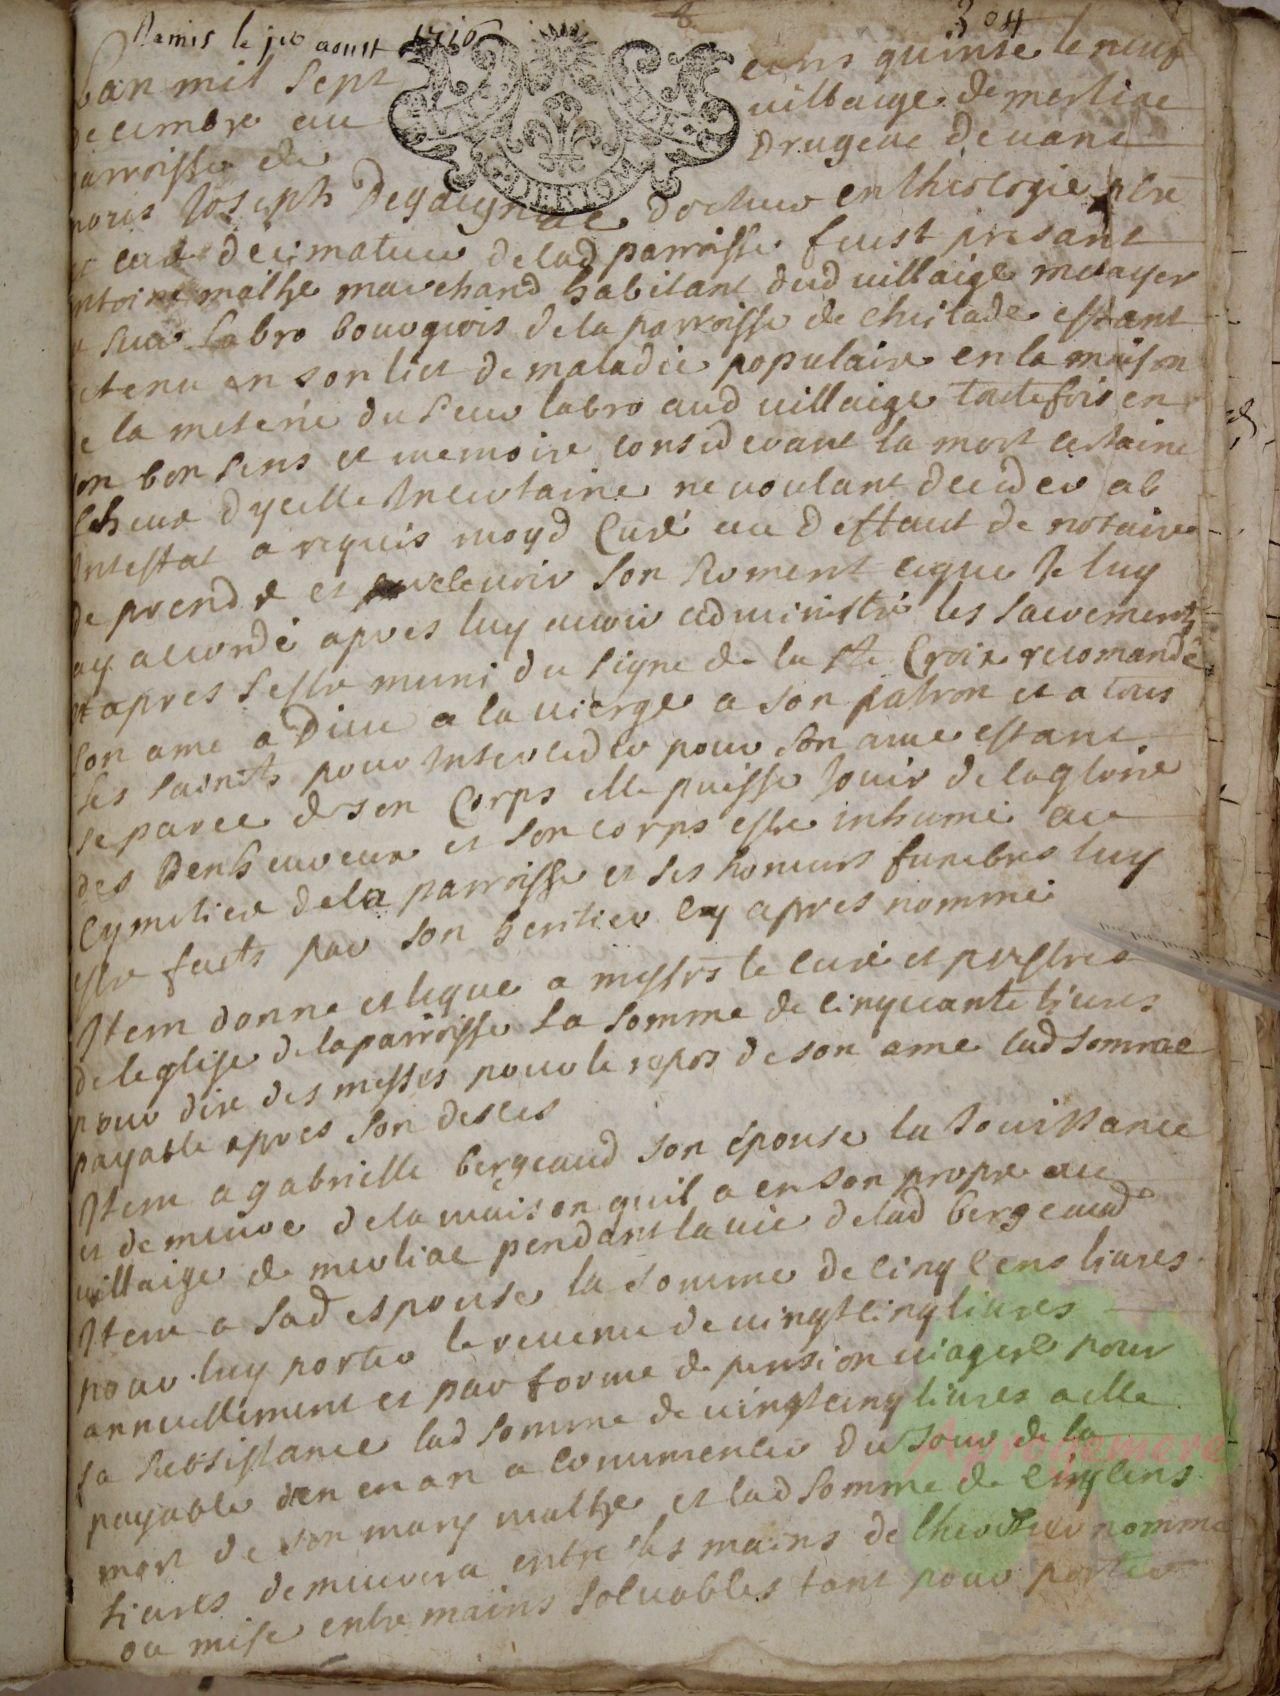 Remis le jer aoust 1716
304
Lan mil sept cens quinse le neuf
decembre au villaige de merliac
parroisse de Drugeac devant
nous Joseph Degaignac docteur en theologie ptre
et curé decimateur de lad parroisse fust presant
antoine mathe marchand habitant dud villaige metayer
a sieur Labro bourgeois de la parroisse de chislade estant
detenu en son lict de maladie populaire en la maison
de la meterie du sieur labro aud villaige toutefois en
son bon sens et memoire considerant la mort certaine
lheure dycelle Incertaine ne voulant deceder ab
Intestat a requis moyd Curé au deffaut de notaire
de prendre et recevoir son testament ceque Je luy
ay accordé apres luy avoir administré les sacrements
et apres sestre muni du signe de la Ste Croix recomandé
son ame a Dieu a la vierge a son patron et a tous
les saincts pour Interceder pour son ame estant
separee de son Corps elle puisse Jouir de la gloire
des Benheureux et son corps estre inhumé au
Cymetiere de la parroisse et ses honeurs funebres luy
estre faicts par son heritier cy apres nommé
Item donne et legue a messrs le curé et prestres
de leglise de la parroisse la somme de cinquante livres
pour dire des messes pour le repos de son ame lad somme
payable apres son desces
Item a gabrielle bergeaud son épouse la Jouissance
et demeure de la maison quil a en son propre au
villaige de merliac pendant la vie delad bergeaud
Item a sad espouse la somme de cinq cens livres
pour luy porter le revenu de vingt cinq livres
annuellement et par forme de pension viagere pour
sa subsistance lad somme de vingt cinq livres a elle
payable dan en an a commencer du Jour de la
mort de son mary mathe et lad somme de cinq cens
livres demeurera entre les mains de lheritier nomme
ou mise entre mains solvables tant pour porter